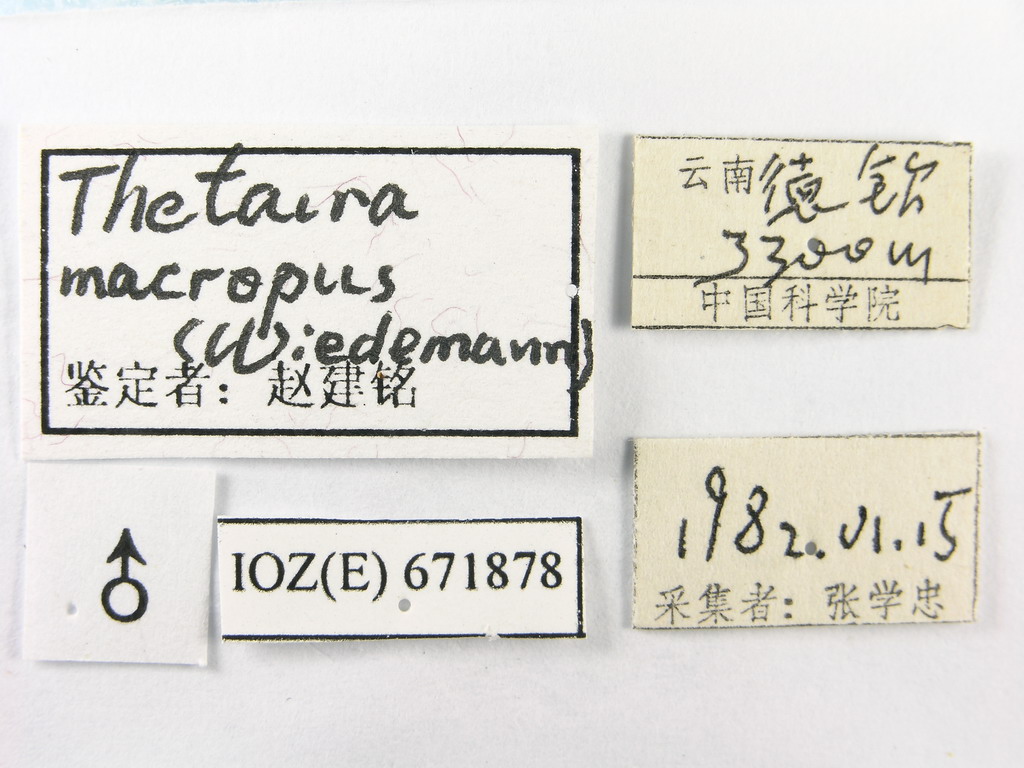 Thetaira
macropus
(Wiedemann)
鉴定者：赵建铭
♂
IOZ(E) 671878
云南德钦
3300m
中国科学院
1982.VI.15
采集者：张学忠